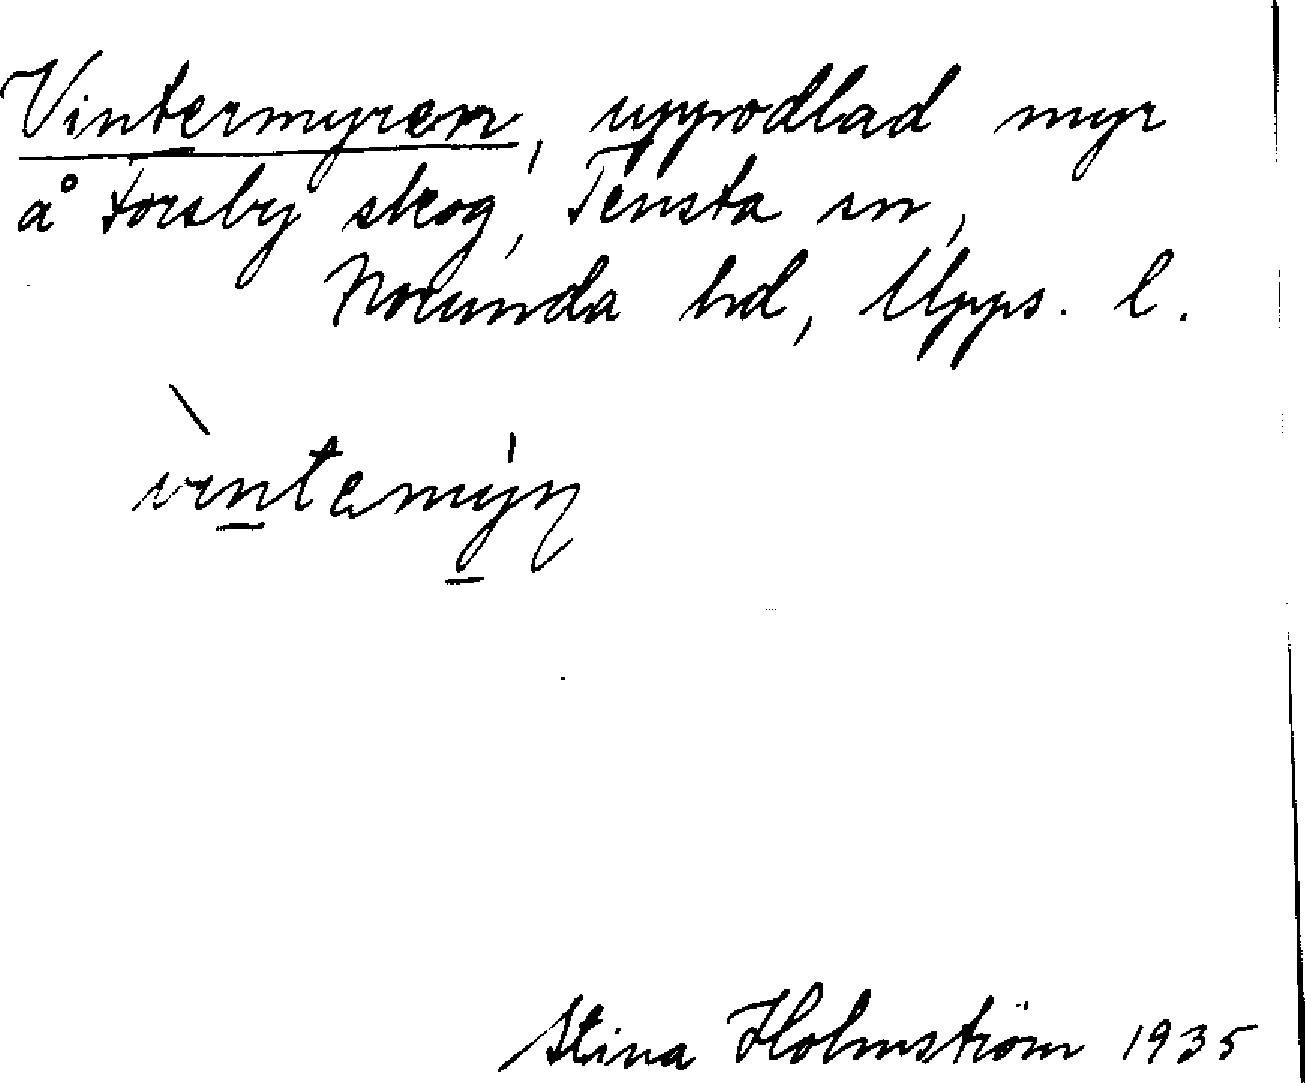 Vintermyren, uppodlad myr
å Forsby skog, Tensta sn,
Norunda hd, Upps. l.
vintamyn
Stina Holmström 1935